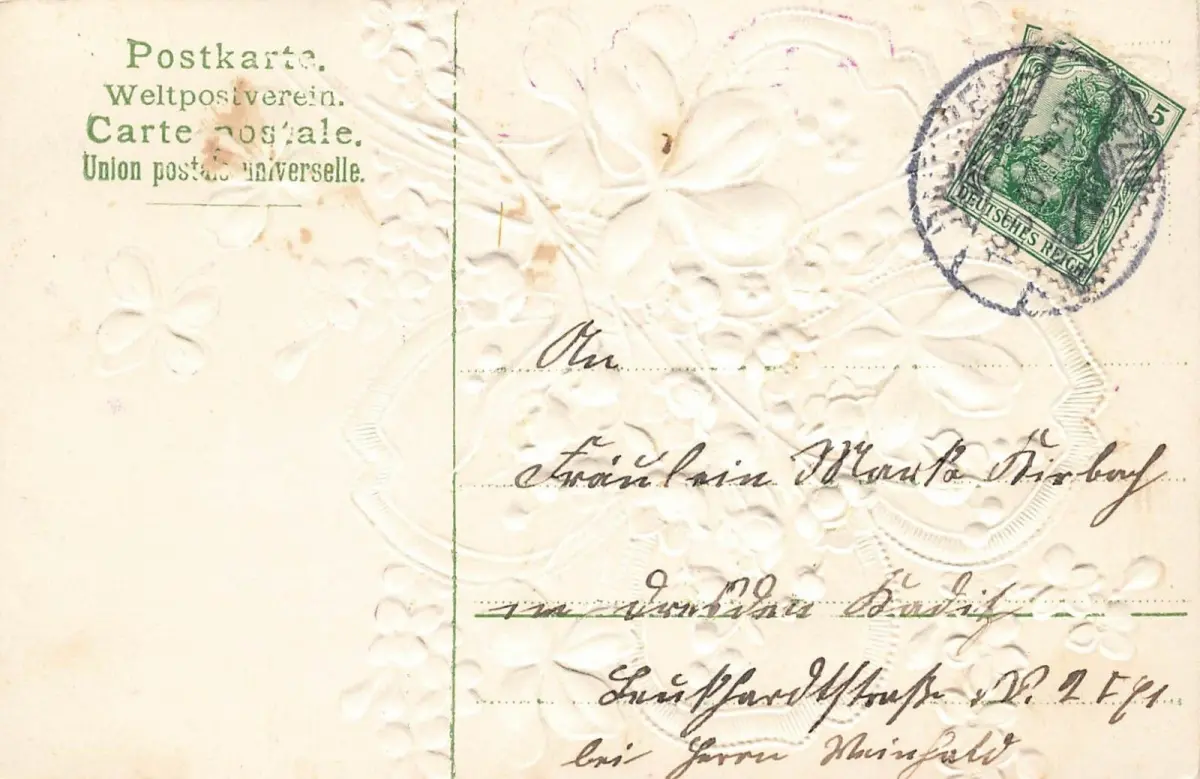 Postkarte.
Weltpostverein.
Carte postale.
Union postale universelle.
5
DEUTSCHES REICH
An
Fräulein Kirbach
in Dresden Kaditz
2
bei Herrn Weinhold